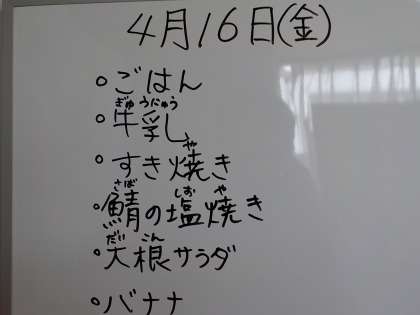 4月16日(金)
・ごはん
ぎゅうにゅう
・牛乳
や
・すき焼き
さば しお や
・鯖の塩焼き
だい こん
・大根サラダ
・バナナ